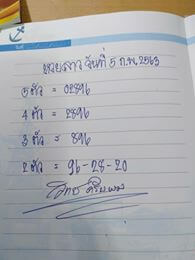 หวยลาว วันที่ 5 ก.พ. 2563
5 ตัว = 02896
4 ตัว = 2896
3 ตัว = 896
2 ตัว = 96-28-20